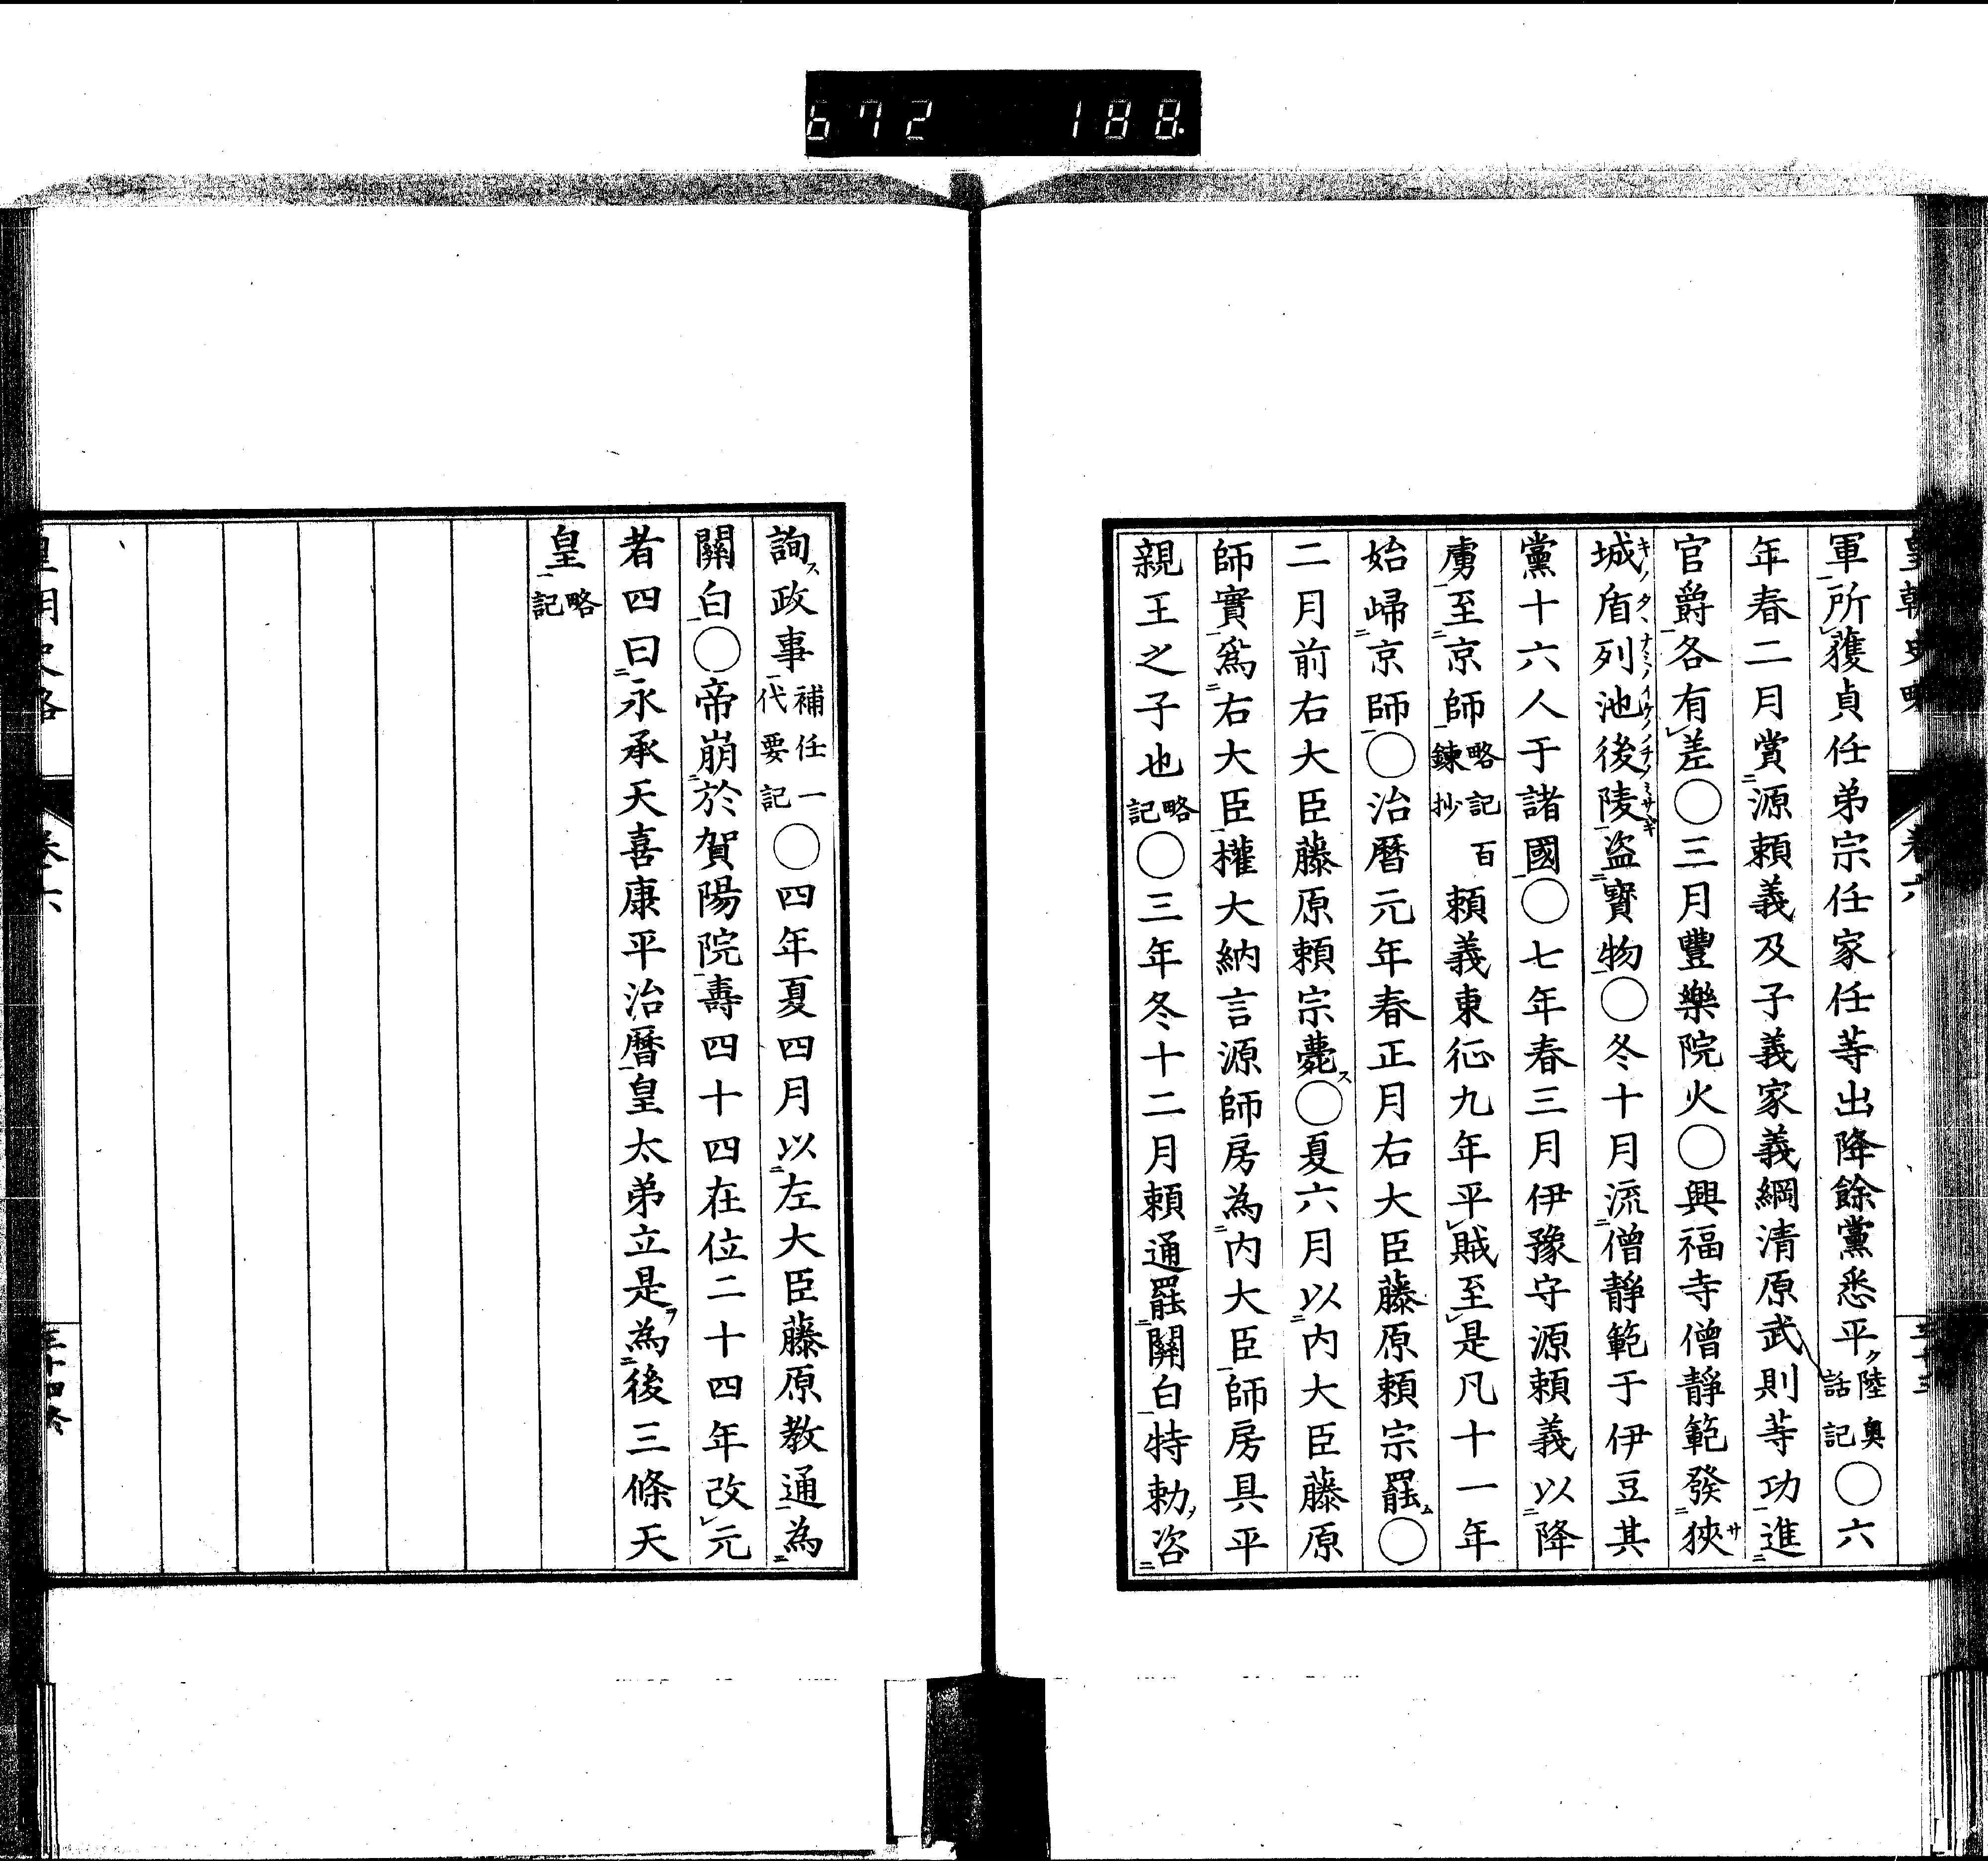 672 188
皇朝史略 卷六
軍所獲貞任弟宗任家任等出降餘黨悉平陸奧話記○六
年春二月賞源賴義及子義家義綱清原武則等功進
官爵各有差○三月豐樂院火○興福寺僧靜範發狹
城盾列池後陵盜寶物○冬十月流僧靜範于伊豆其
黨十六人于諸國○七年春三月伊豫守源賴義以降
虜至京師略記百鍊抄賴義東征九年平賊至是凡十一年
始歸京師○治曆元年春正月右大臣藤原賴宗罷○
二月前右大臣藤原賴宗薨○夏六月以內大臣藤原
師實爲右大臣權大納言源師房為內大臣師房具平
親王之子也略記○三年冬十二月賴通罷關白特勅咨
詢政事補任一代要記○四年夏四月以左大臣藤原教通為
關白○帝崩於賀陽院壽四十四在位二十四年改元
者四曰永承天喜康平治曆皇太弟立是為後三條天
皇略記
皇朝史略 卷六 三十四終